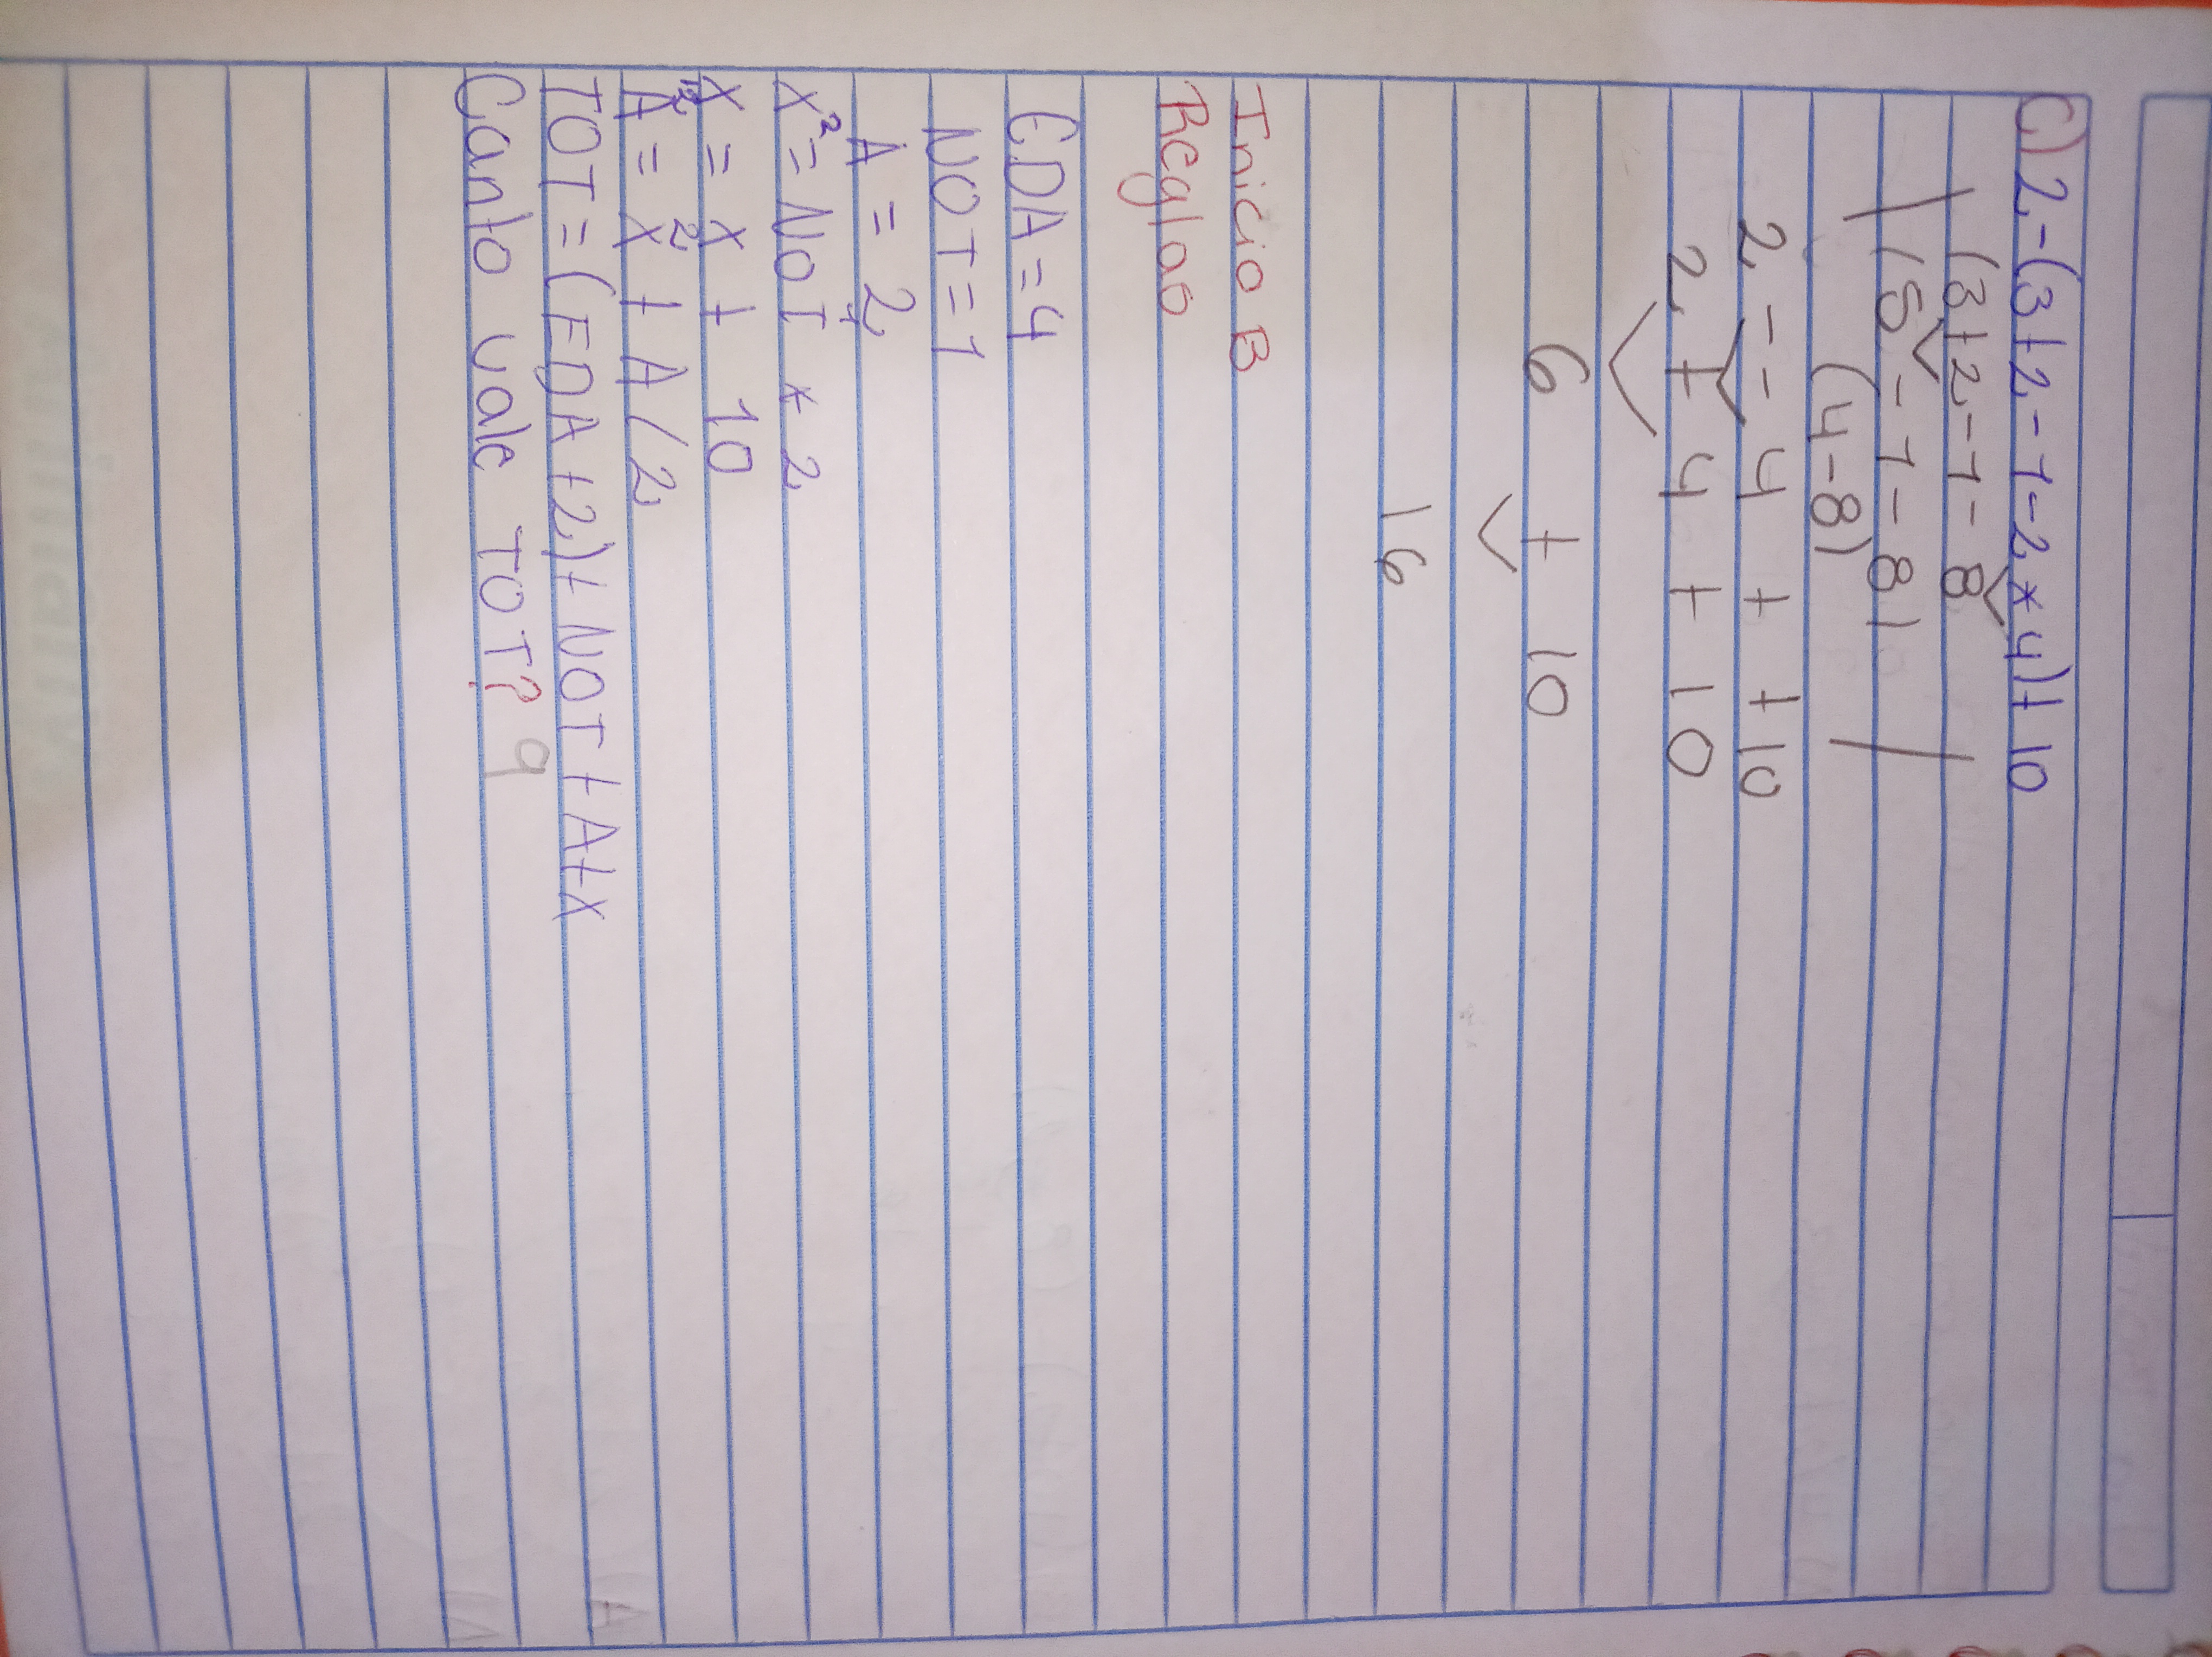 C) 2-(3+2-1-2*4)+10
(3+2-1-8
(5-1-8)
(4-8)
2 - - 4 + +10
2 + 4 + 10
6 + 10
16
Inicio B
Reglas
EDA=4
NOT=1
A = 2
X²= NOT * 2
X = X + 10
12 2
A = X + A/2
TOT=(EDA+2)+NOT+A+X
Canto vale TOT? 9